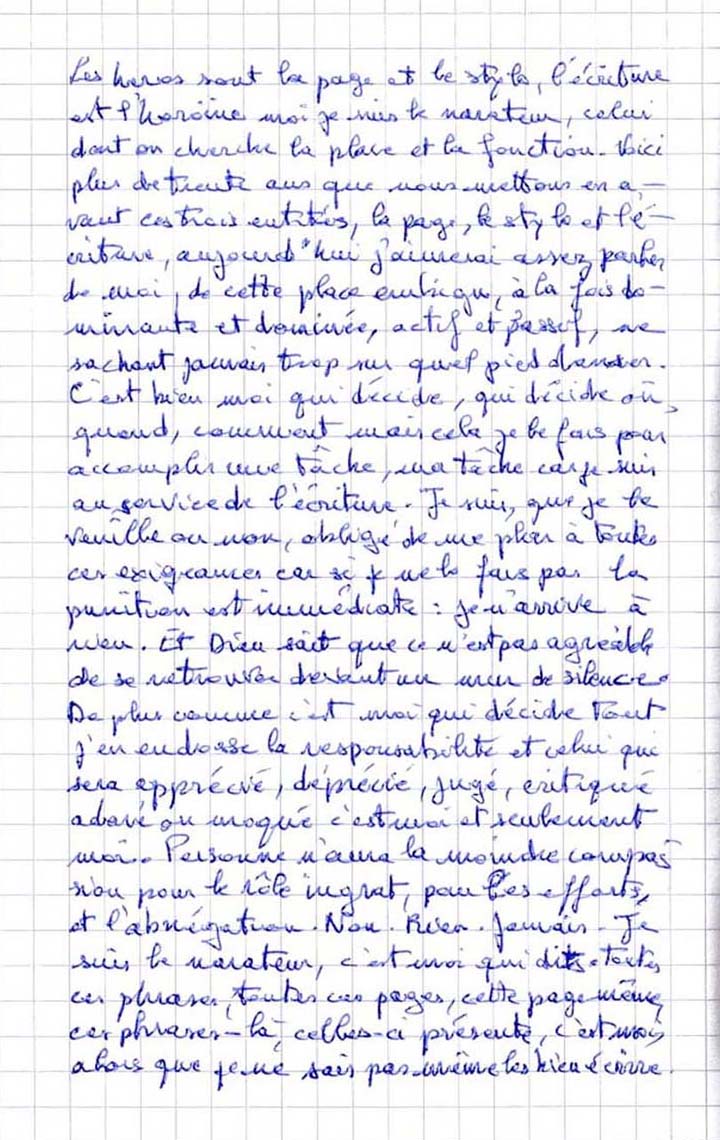 Les heros sont la page et le stylo, l'écriture
est l'heroïne moi je suis le narateur, celui
dont on cherche la place et la fonction. Voici
plus de trente ans que nous mettons en a-
vant ces trois entités, la page, le stylo et l'é-
criture, aujourd'hui j'aimerai assez parler
de moi, de cette place ambigu, à la fois do-
minante et dominée, actif et passif, ne
sachant jamais trop sur quel pied danser.
C'est bien moi qui décide, qui décide où,
quand, comment mais cela je le fais pour
accomplir une tâche, ma tâche car je suis
au service de l'écriture. Je suis, que je le
veuille ou non, obligé de me plier à toutes
ces exigeances car si je ne le fais pas la
punition est immédiate : je n'arrive à
rien. Et Dieu sait que ce n'est pas agréable
de se retrouver devant un mur de silence.
De plus comme c'est moi qui décide tout
j'en endosse la responsabilité et celui qui
sera apprécié, déprécié, jugé, critiqué
adoré ou moqué c'est moi et seulement
moi. Personne n'aura la moindre compas
sion pour le rôle ingrat, pour les efforts,
et l'abnégation. Non. Rien. Jamais. Je
suis le narateur, c'est moi qui dits toutes
ces phrases, toutes ces pages, cette page même,
ces phrases-là, celles-ci présente, c'est moi,
alors que je ne sais pas même les bien écrire.